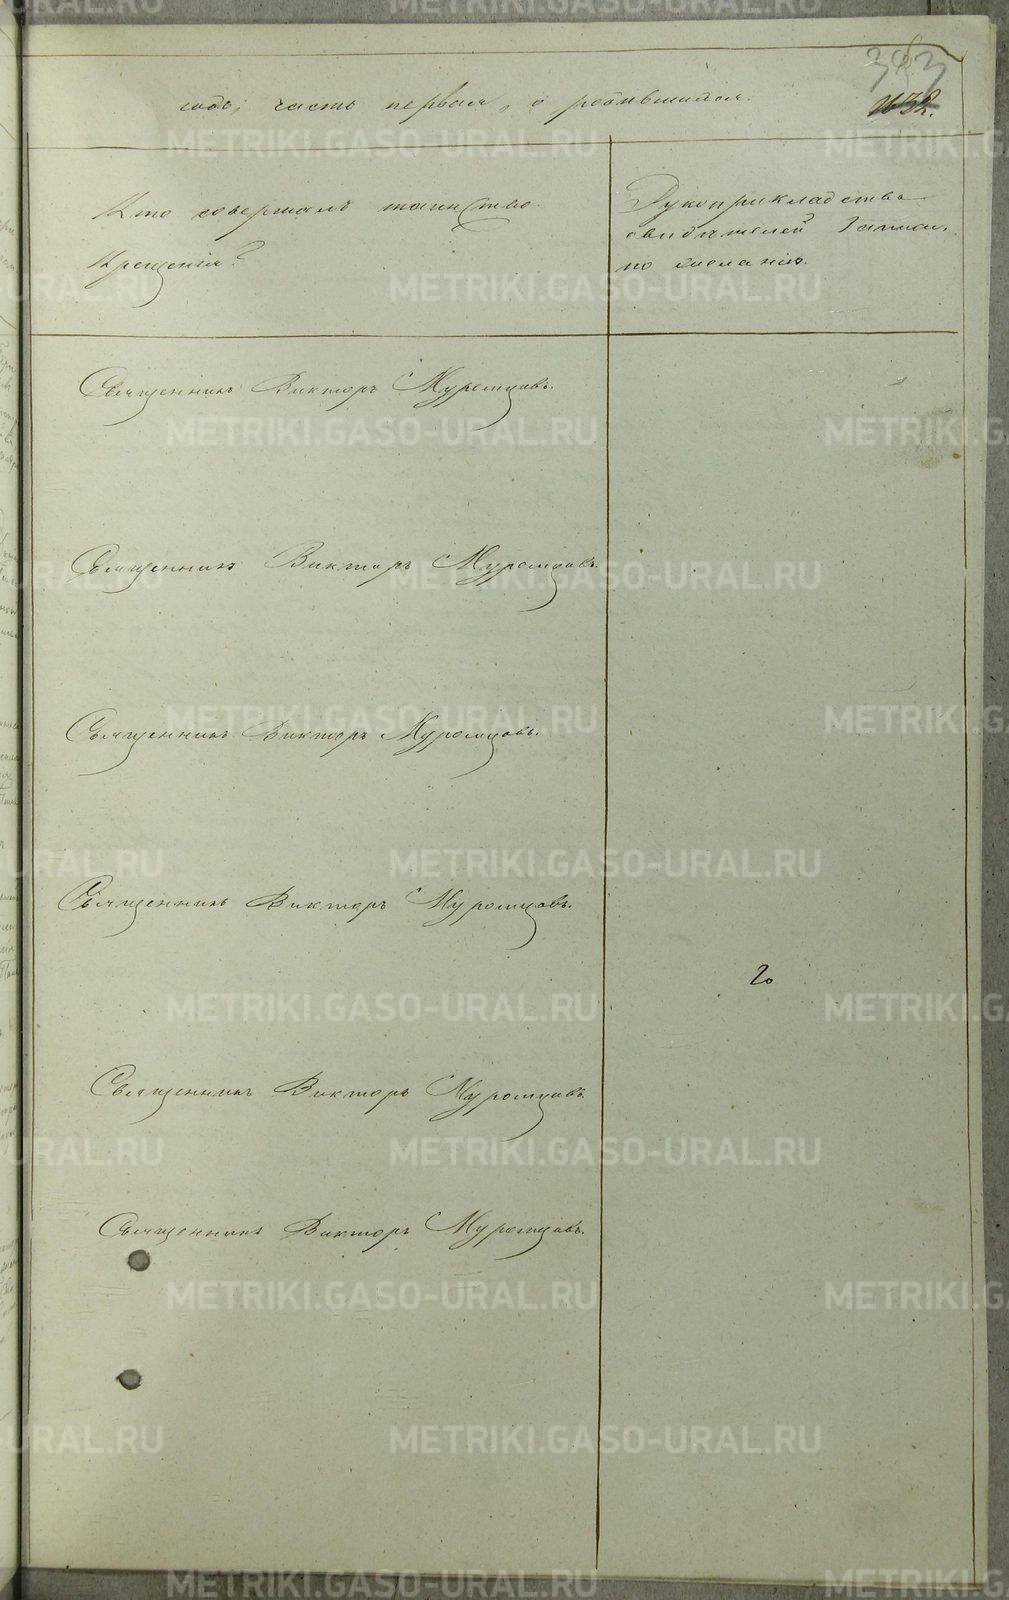 363
1632.
годъ, часть первая, о родившихся.
Кто совершалъ таинство
Крещенія?
Рукоприкладство
свидѣтелей записи
по желанію.
Священникъ Викторъ Муромцовъ.
Священникъ Викторъ Муромцовъ.
Священникъ Викторъ Муромцовъ.
Священникъ Викторъ Муромцовъ.
20
Священникъ Викторъ Муромцовъ.
Священникъ Викторъ Муромцовъ.
METRIKI.GASO-URAL.RU